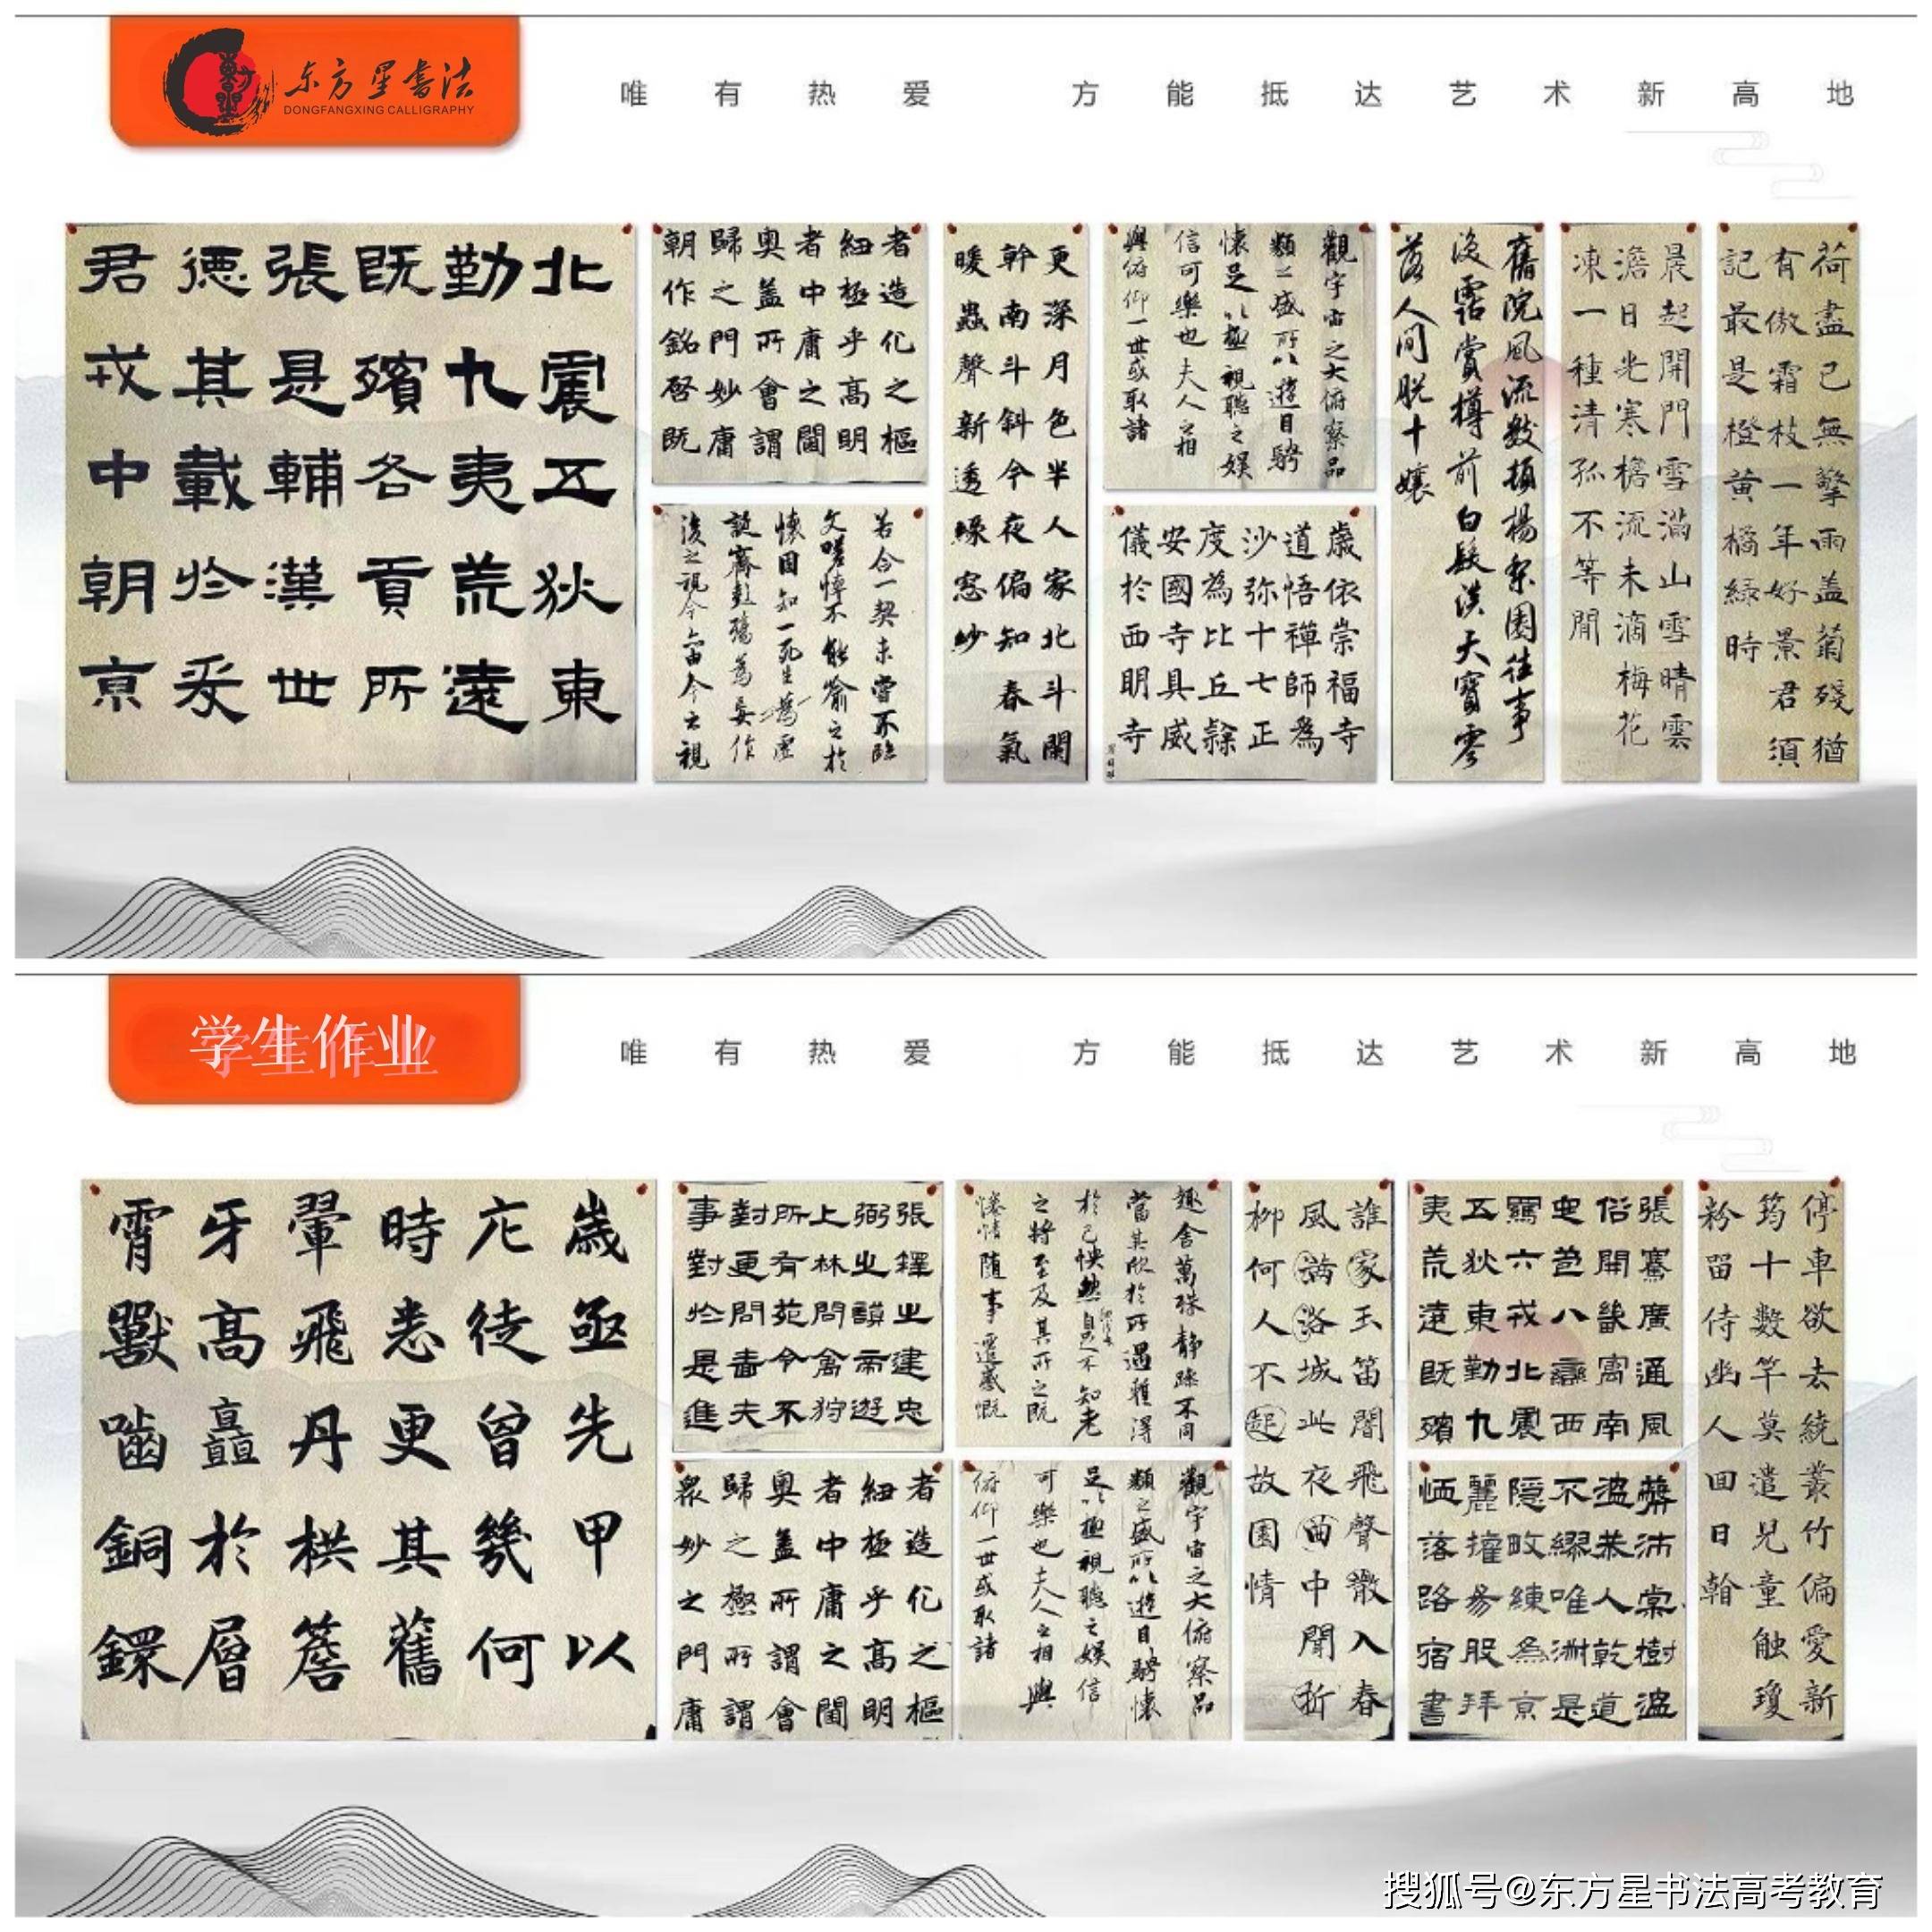 东方星书法
DONGFANGXING CALLIGRAPHY
唯有热爱 方能抵达艺术新高地
北震五狄東
勤九夷荒遠
既殯各貢所
張是輔漢世
德其載於爰
君戎中朝京
者造化之樞
紐極乎高明
者中庸之閫
奧盖所會謂
歸之門妙庸
朝作銘啓既
若合一契未嘗不臨
文嗟悼不能喻之於
懷固知一死生為虛
誕齊彭殤為妄作
後之視今亦由今之視
更深月色半人家北斗闌
幹南斗斜今夜偏知春氣
暖蟲聲新透緑窓紗
觀宇宙之大俯察品
類之盛所以遊目騁
懷足以極視聽之娱
信可樂也夫人之相
與俯仰一世或取諸
歳依崇福寺
道悟禪師為
沙弥十七正
度為比丘隸
安國寺具威
儀於西明寺
舊院風流數頓楊梨園往事
淚霑賞樽前白髮談天寳零
落人間脱十孃
晨起開門雪滿山雪晴雲
澹日光寒檐流未滴梅花
凍一種清孤不等閒
荷盡已無擎雨盖菊殘猶
有傲霜枝一年好景君須
記最是橙黄橘緑時
学生作业
唯有热爱 方能抵达艺术新高地
歳亟先甲以
徒曾幾何
時恙更其舊
翬飛丹栱簷
牙高矗於層
霄獸嚙銅鐶
張釋之建忠
弼之謨帝遊
上林問禽狩
所有苑令不
對更問嗇夫
事對於是進
者造化之樞
紐極乎高明
者中庸之閫
奧盖所謂會
歸之極所謂
衆妙之門庸
趣舍萬殊静躁不同
當其欣於所遇暫得
於己怏然自足不知老
之將至及其所之既
惓情隨事遷感慨
觀宇宙之大俯察品
類之盛所以遊目騁懷
足以極視聽之娱信
可樂也夫人之相與
俯仰一世或取諸
誰家玉笛闇飛聲散入春
風满洛城此夜曲中聞折
柳何人不起故園情
張騫廣通風
俗開畿寓南
苞八蠻西
羈六戎北震
五狄東勤九
夷荒遠既殯
蔽沛棠樹温
温恭人乾道
不繆唯淑是
隱畋練為京
麗擢參股拜
恤落路宿書
停車欲去繞叢竹偏愛新
筠十數竿莫遣兒童触瓊
粉留待幽人回日翰
搜狐号@东方星书法高考教育